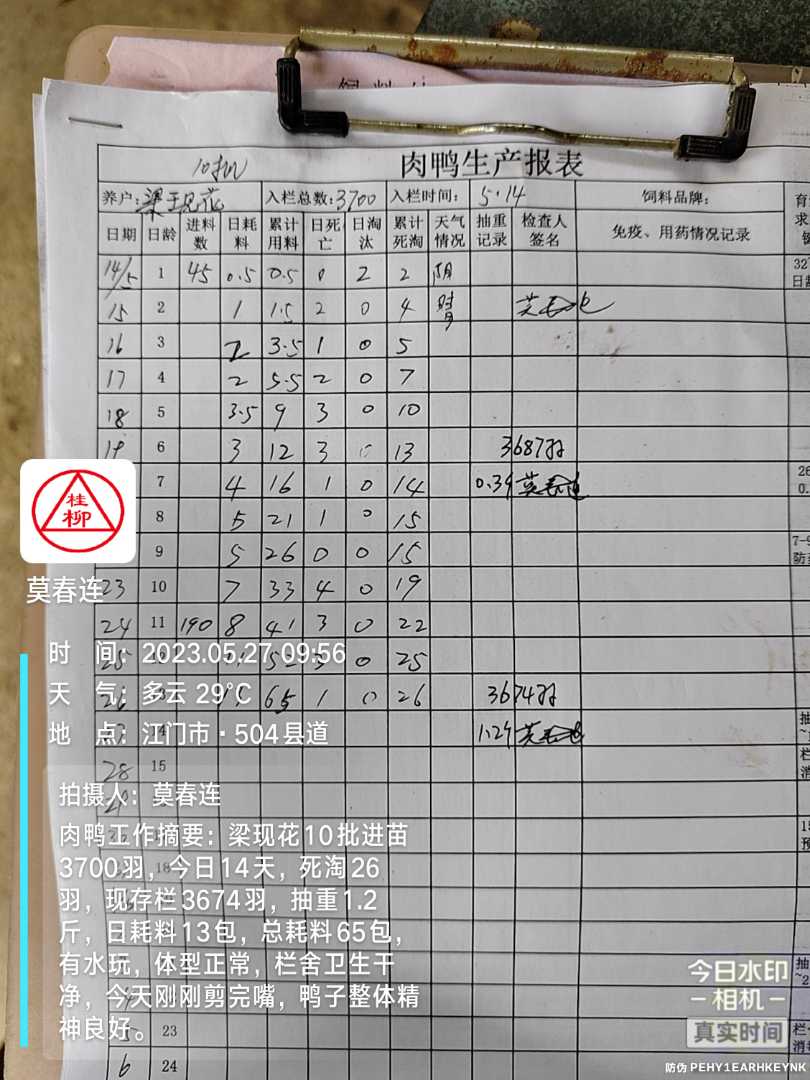 10批
肉鸭生产报表
养户: 梁现花 入栏总数: 3700 入栏时间: 5.14 饲料品牌:
日期 日龄 进料数 日耗料 累计用料 日死亡 日淘汰 累计死淘 天气情况 抽重记录 检查人签名 免疫、用药情况记录
14/5 1 45 0.5 0.5 0 2 2 阴
15 2 1 1.5 2 0 4 晴 莫春连
16 3 2 3.5 1 0 5
17 4 2 5.5 2 0 7
18 5 3.5 9 3 0 10
19 6 3 12 3 0 13 3687羽
7 4 16 1 0 14 0.39 莫春连
8 5 21 1 0 15
9 5 26 0 0 15
23 10 7 33 4 0 19
24 11 190 8 41 3 0 22
25 3 0 25
26 65 1 0 26 3674羽
莫春连
28 15
18
5 23
6 24
桂柳
莫春连
时 间: 2023.05.27 09:56
天 气: 多云 29℃
地 点: 江门市·504县道
拍摄人: 莫春连
肉鸭工作摘要: 梁现花10批进苗
3700羽, 今日14天, 死淘26
羽, 现存栏3674羽, 抽重1.2
斤, 日耗料13包, 总耗料65包,
有水玩, 体型正常, 栏舍卫生干
净, 今天刚刚剪完嘴, 鸭子整体精
神良好。
今日水印
相机
真实时间
防伪 PEHY1EARHKEYNK